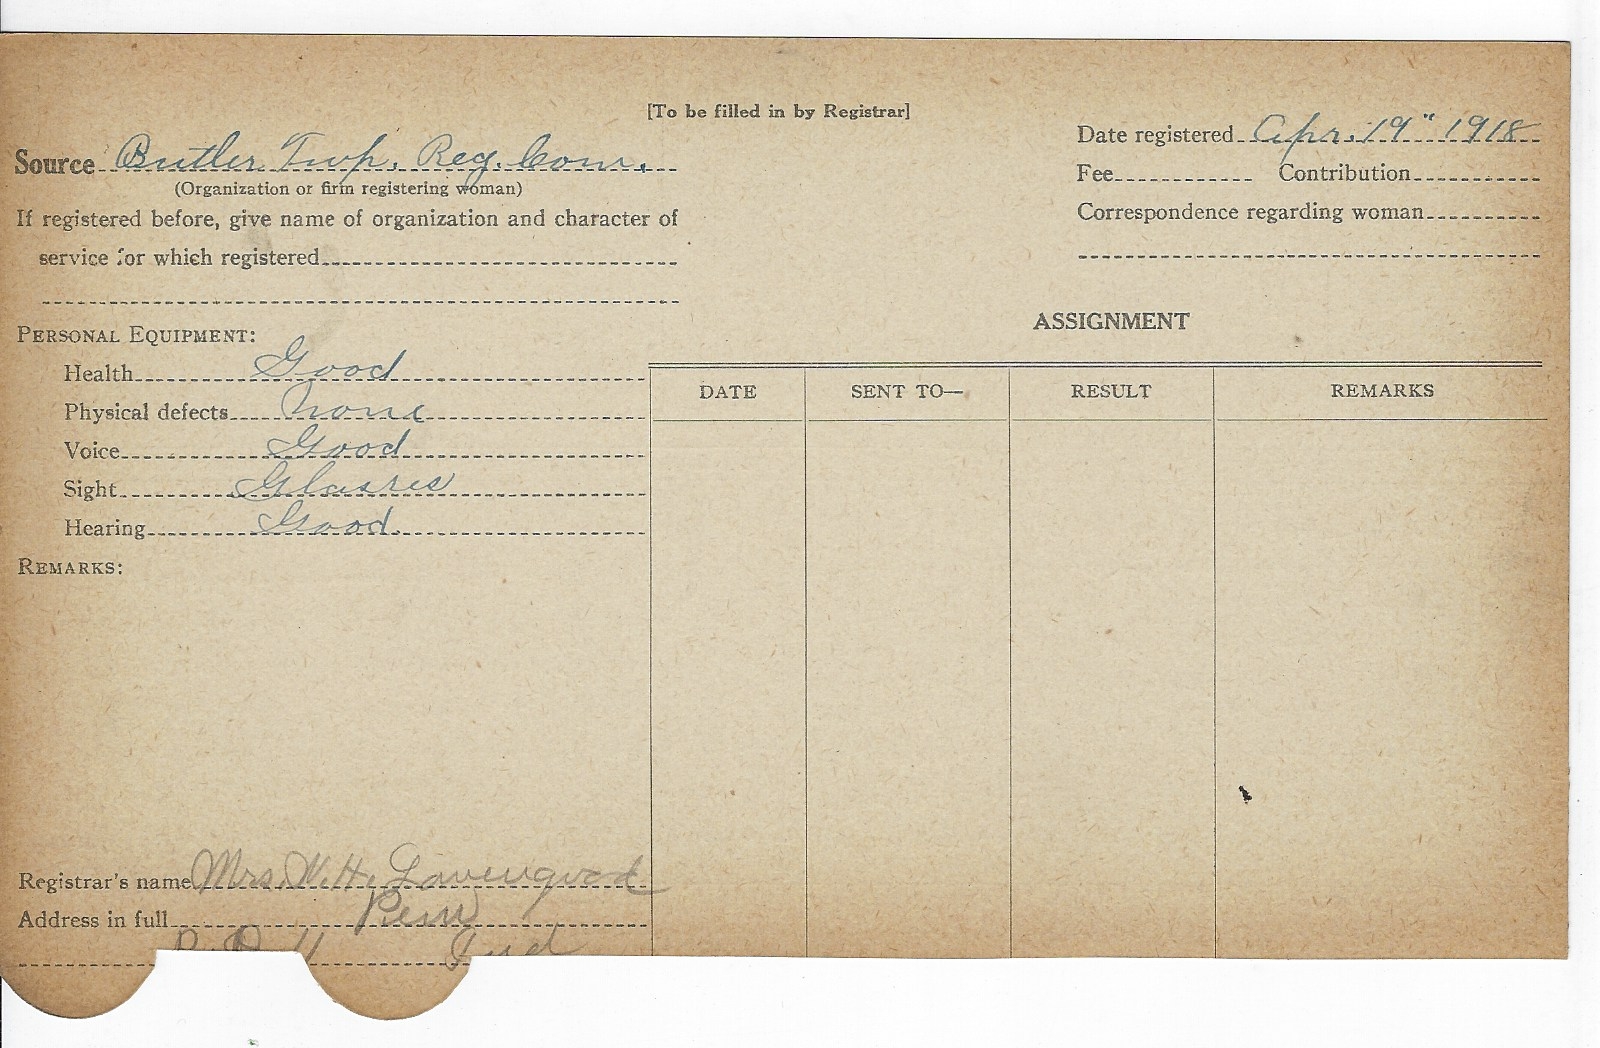 [To be filled in by Registrar]
Source Butler Twp. Reg. Com.
(Organization or firm registering woman)
If registered before, give name of organization and character of
service for which registered
Date registered Apr. 19" 1918
Fee Contribution
Correspondence regarding woman
PERSONAL EQUIPMENT:
Health Good
Physical defects None
Voice Good
Sight Glasses
Hearing Good.
REMARKS:
ASSIGNMENT
DATE SENT TO— RESULT REMARKS
Registrar's name Mrs. W. H. Lavengood
Address in full Peru
Ind